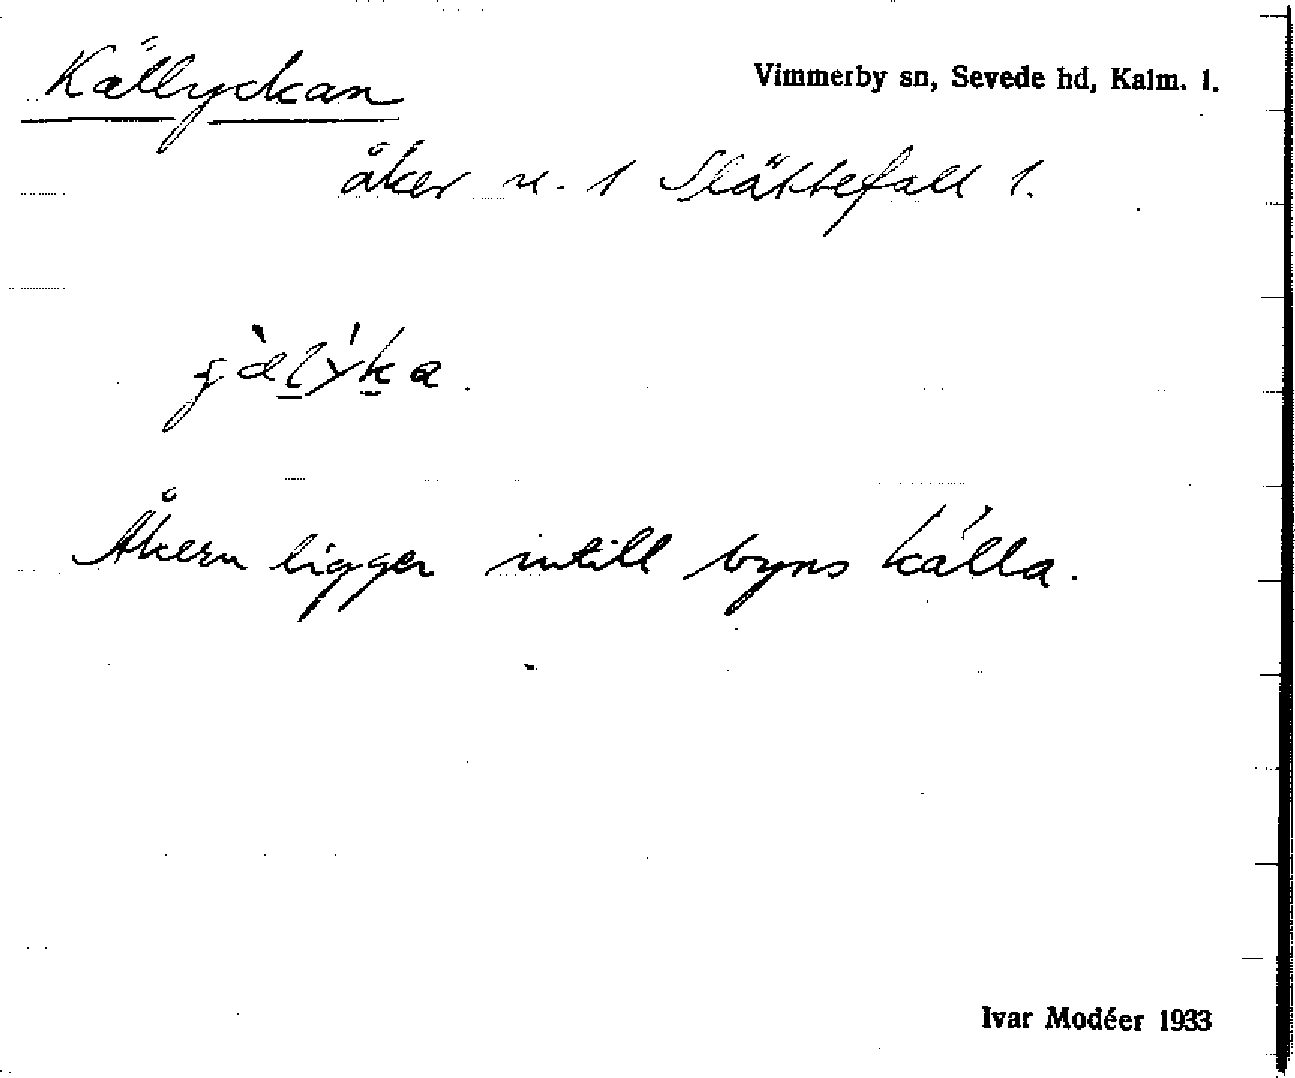 Källyckan
Vimmerby sn, Sevede hd, Kalm. l.
åker n. 1 Slättefall 1.
Åkern ligger intill byns källa.
Ivar Modéer 1933